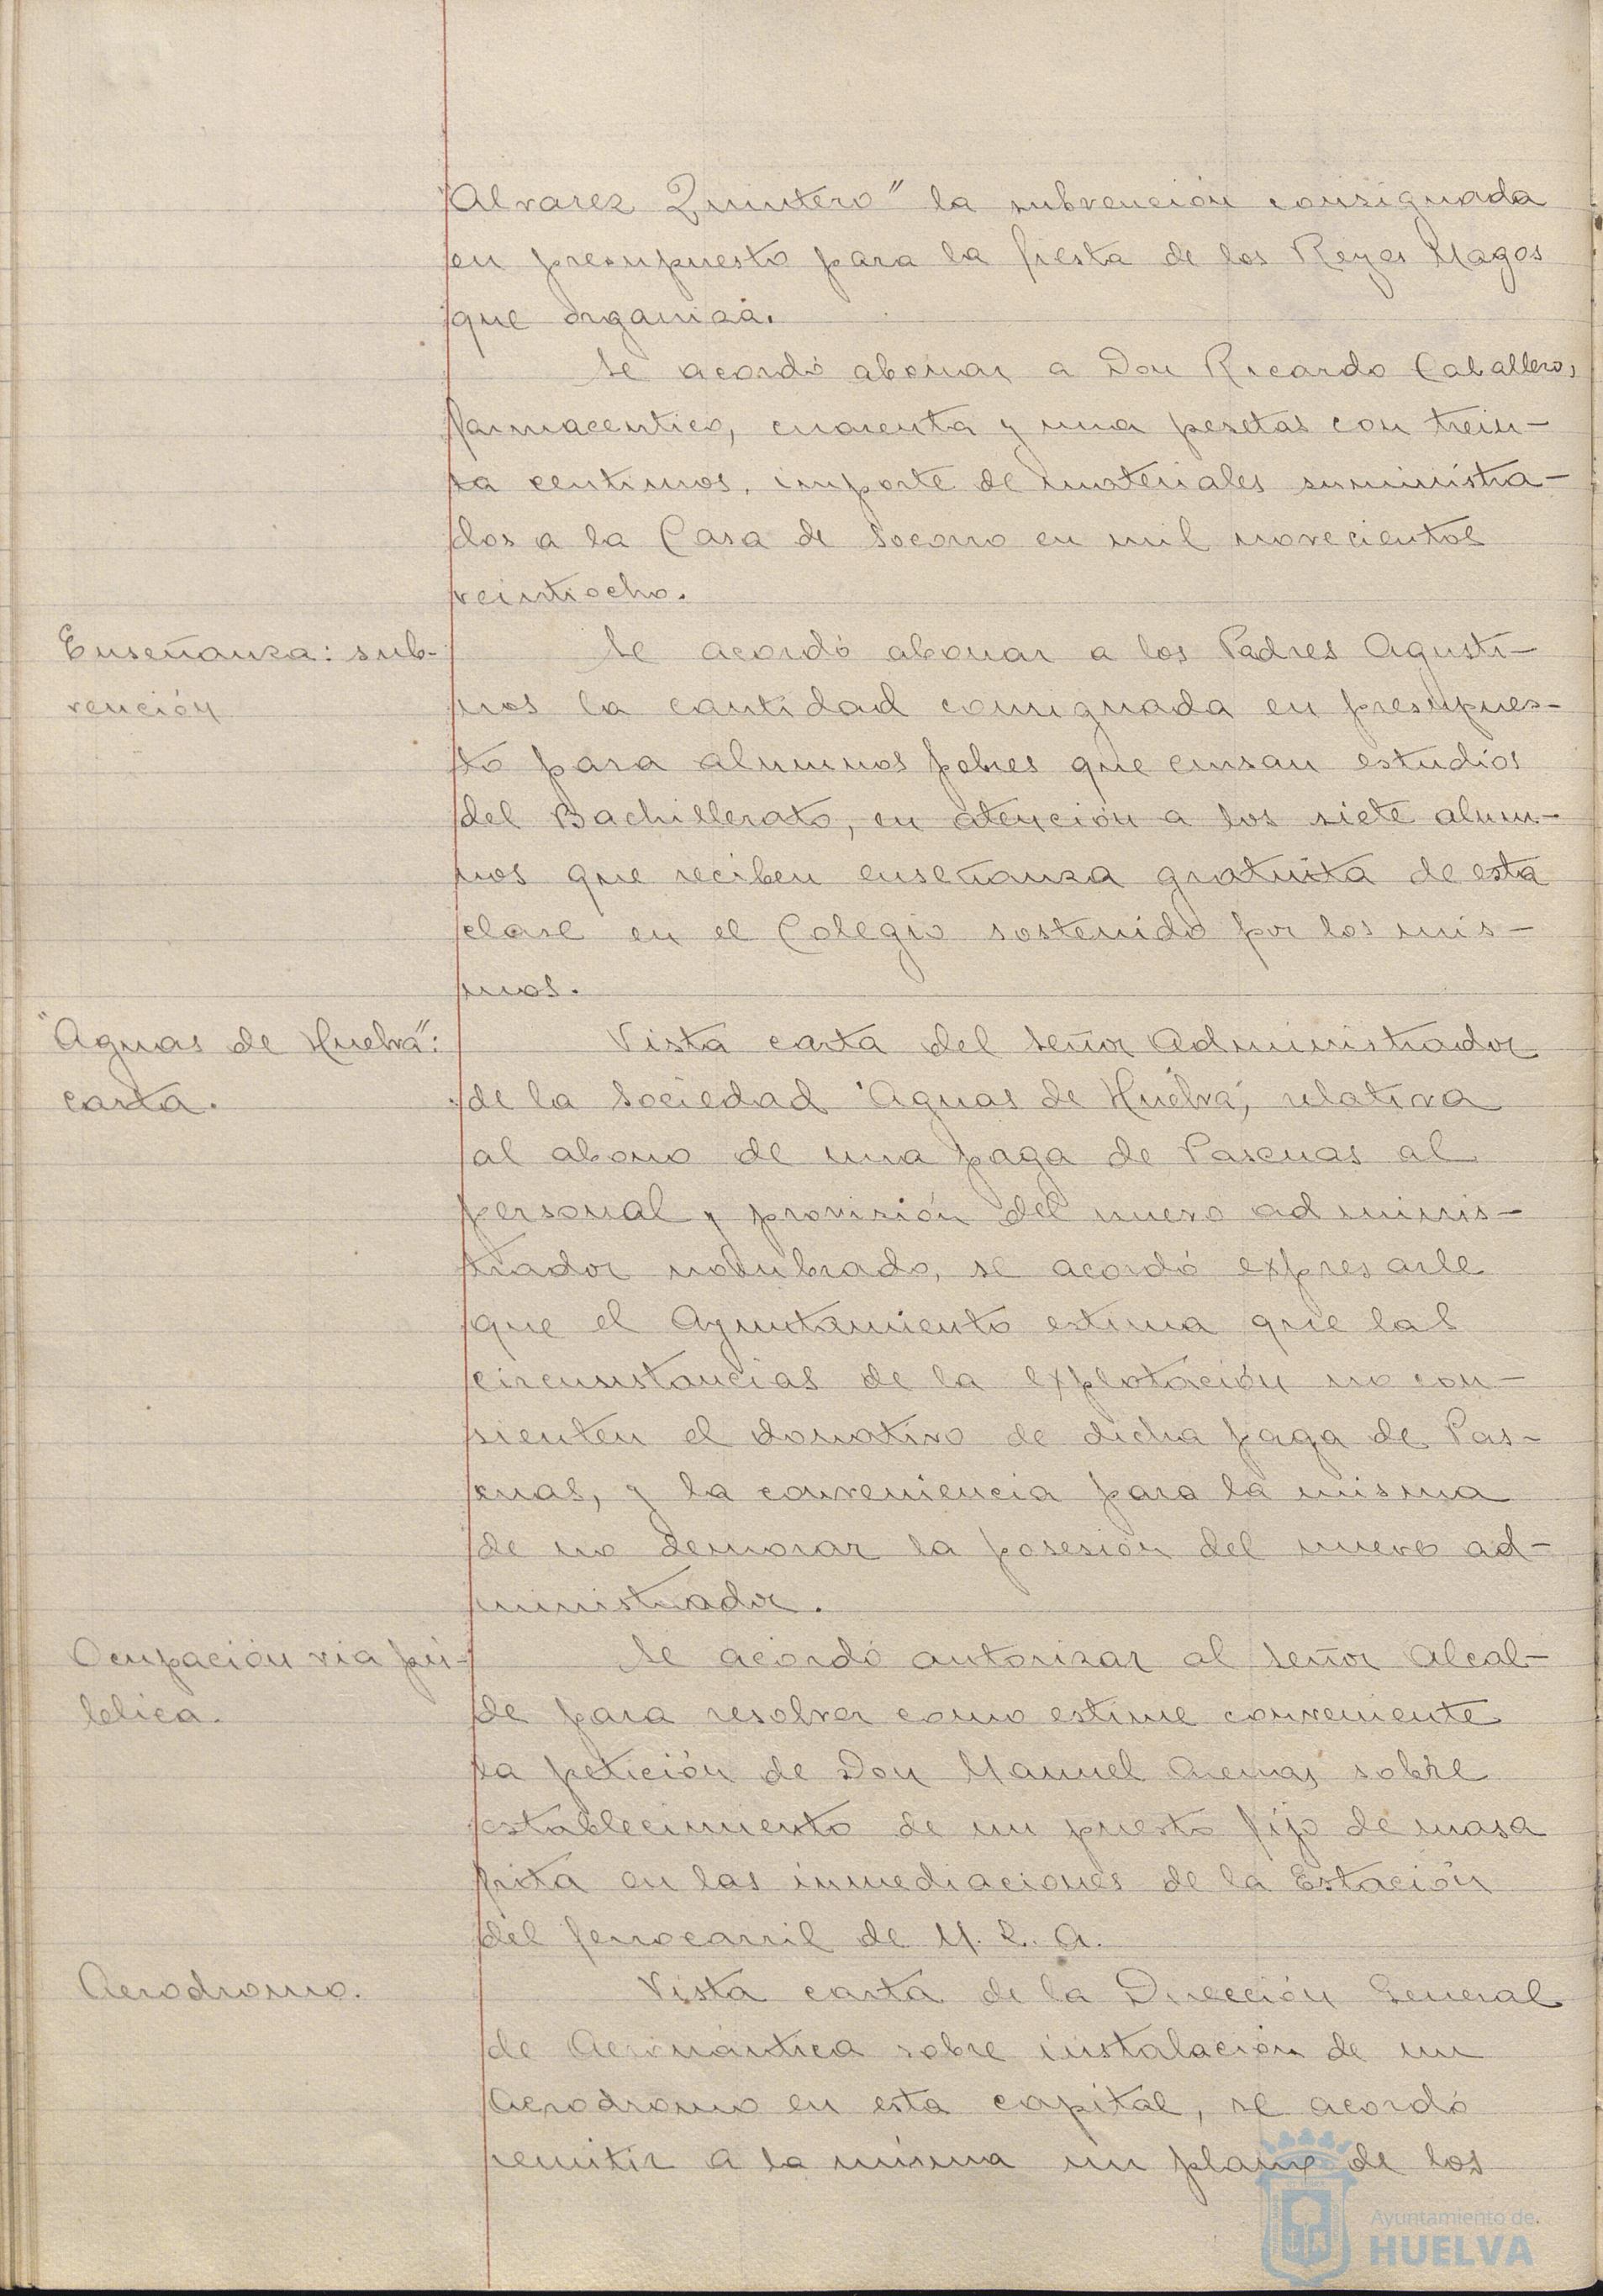 "Alvarez Quintero" la subvención consignada
en presupuesto para la fiesta de los Reyes Magos
que organiza.
Se acordó abonar a Don Ricardo Caballero,
farmaceutico, cuarenta y una pesetas con trein-
ta centimos, importe de materiales suministra-
dos a la Casa de Socorro en mil novecientos
veintiocho.
Enseñanza: sub-
vención
Se acordó abonar a los Padres Agusti-
nos la cantidad consignada en presupues-
to para alumnos pobres que cursan estudios
del Bachillerato, en atención a los siete alum-
nos que reciben enseñanza gratuita de esta
clase en el Colegio sostenido por los mis-
mos.
"Aguas de Huelva":
carta.
Vista carta del Señor Administrador
de la Sociedad "Aguas de Huelva", relativa
al abono de una paga de Pascuas al
personal y provisión del nuevo adminis-
trador nombrado, se acordó expresarle
que el Ayuntamiento estima que las
circunstancias de la explotación no con-
sienten el donativo de dicha paga de Pas-
cuas, y la conveniencia para la misma
de no demorar la posesión del nuevo ad-
ministrador.
Ocupación via pú-
blica.
Se acordó autorizar al Señor Alcal-
de para resolver como estime conveniente
la petición de Don Manuel Arenas sobre
establecimiento de un puesto fijo de masa
frita en las inmediaciones de la Estación
del ferrocarril de M. Z. A.
Aerodromo.
Vista carta de la Dirección General
de Aeronáutica sobre instalación de un
Aerodromo en esta capital, se acordó
remitir a la misma un plano de los
Ayuntamiento de
HUELVA